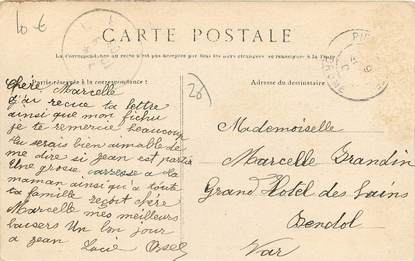 10 €
CARTE POSTALE
La Correspondance au recto n'est pas acceptée par tous les pays étrangers
Partie réservée à la correspondance
Adresse du destinataire
28
Chère Marcelle
J'ai recue ta lettre
ainsi que mon fichu
je te remercie beaucoup
tu serais bien aimable de
me dire si jean est partie
Une grosse caresse a ta
maman ainsi qu'a toute
ta famille reçoit chère
Marcelle mes meilleurs
baisers Un bon jour
a jean
Mademoiselle
Marcelle Grandin
Grand Hotel des bains
Bendol
Var